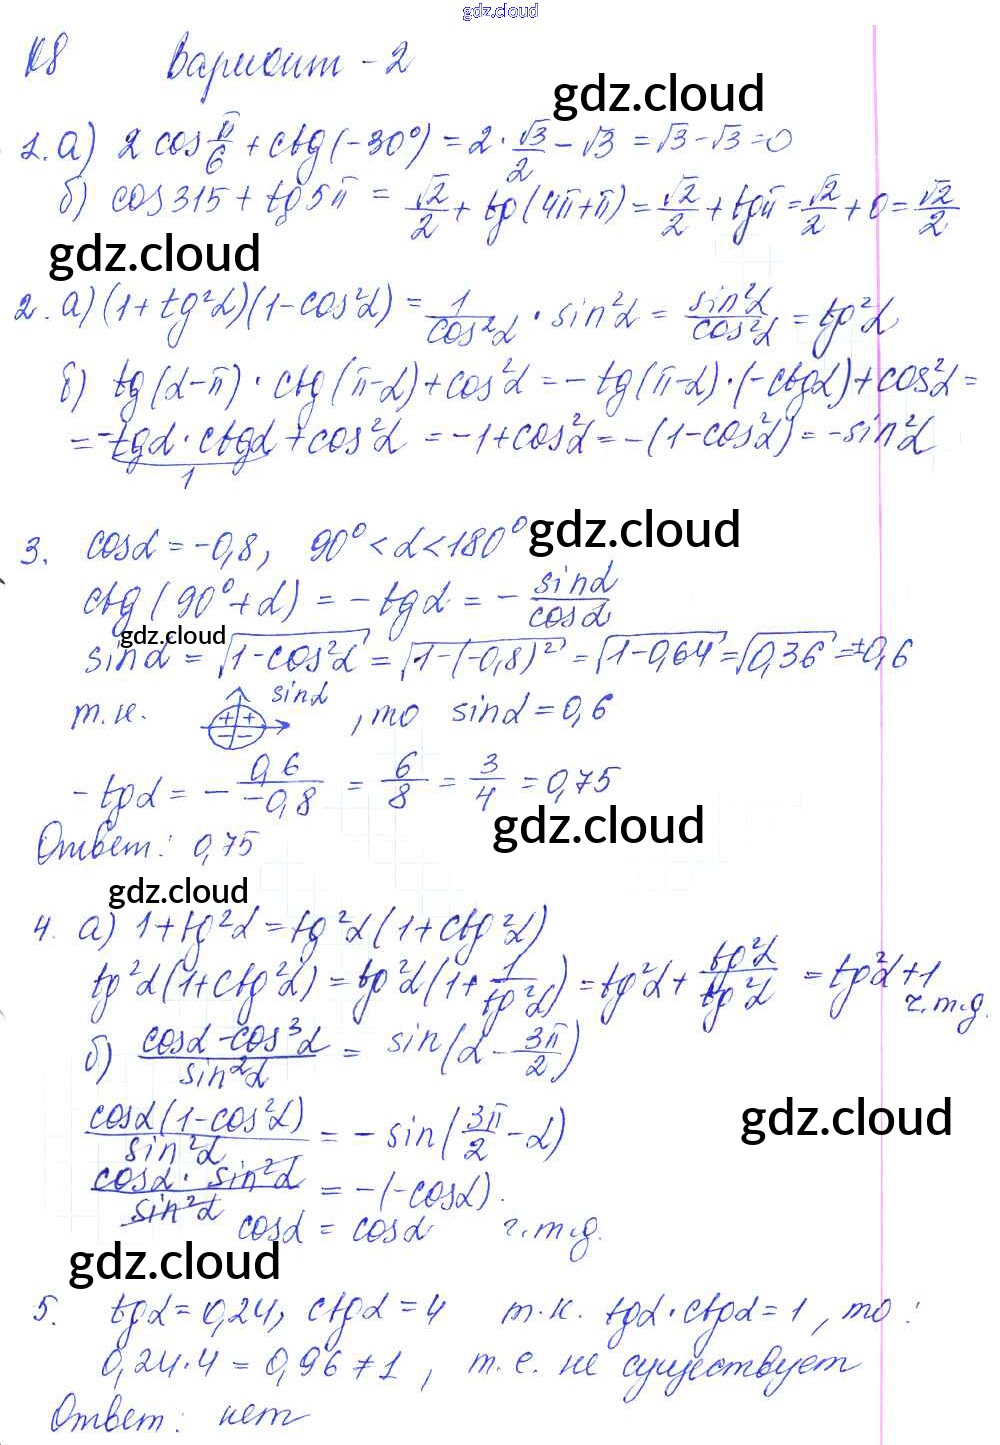 gdz.cloud
К8 Вариант - 2
gdz.cloud
1. а) 2 cos π/6 + ctg(-30°) = 2 · √3/2 - √3 = √3 - √3 = 0
б) cos 315 + tg 5π = √2/2 + tg(4π+π) = √2/2 + tg π = √2/2 + 0 = √2/2
gdz.cloud
2. а) (1 + tg²α)(1 - cos²α) = 1/cos²α · sin²α = sin²α/cos²α = tg²α
б) tg(α-π) · ctg(π-α) + cos²α = - tg(π-α) · (-ctgα) + cos²α =
= -tgα · ctgα + cos²α = -1 + cos²α = -(1-cos²α) = -sin²α
1
3. cosα = -0,8, 90° < α < 180° gdz.cloud
ctg(90°+α) = - tgα = - sinα/cosα
gdz.cloud
sinα = √(1-cos²α) = √(1-(-0,8)²) = √(1-0,64) = √0,36 = ±0,6
т.к. + + - - sinα , то sinα = 0,6
- tgα = - 0,6/-0,8 = 6/8 = 3/4 = 0,75
gdz.cloud
Ответ: 0,75
gdz.cloud
4. а) 1 + tg²α = tg²α(1 + ctg²α)
tg²α(1 + ctg²α) = tg²α(1 + 1/tg²α) = tg²α + tg²α/tg²α = tg²α + 1
ч.т.д.
б) (cosα - cos³α)/sin²α = sin(α - 3π/2)
cosα(1-cos²α)/sin²α = - sin(3π/2 - α)
gdz.cloud
cosα · sin²α/sin²α = -(-cosα).
cosα = cosα ч.т.д.
gdz.cloud
5. tgα = 0,24, ctgα = 4 т.к. tgα · ctgα = 1, то:
0,24 · 4 = 0,96 ≠ 1, т.е. не существует
Ответ: нет